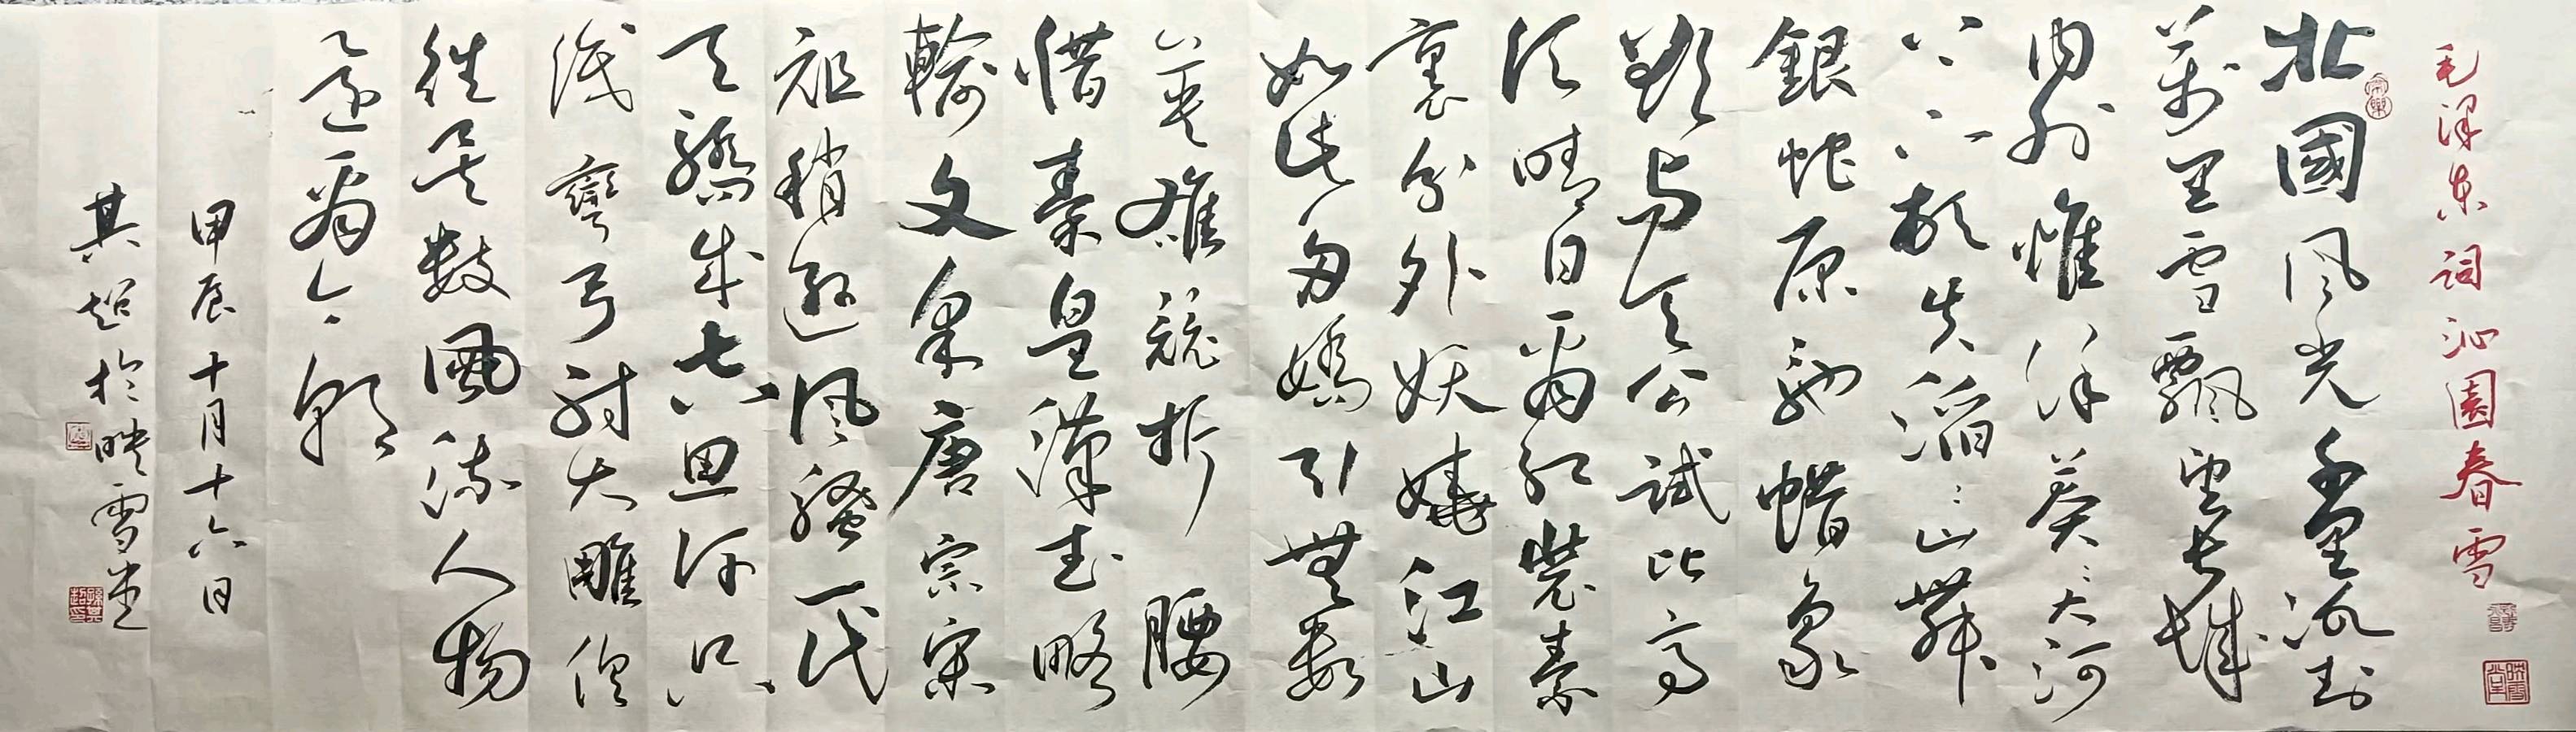 毛泽东词沁园春雪
北國风光千里冰封
萬里雪飄望長城
内外惟余莽莽大河
上下顿失滔滔山舞
銀蛇原馳蜡象
欲与天公試比高
须晴日看红裝素
裹分外妖娆江山
如此多嬌引無數
英雄競折腰
惜秦皇漢武略
輸文采唐宗宋
祖稍遜风騷一代
天驕成吉思汗只
識彎弓射大雕俱
往矣數風流人物
還看今朝
甲辰十月十六日
其超於映雪堂
映雪堂